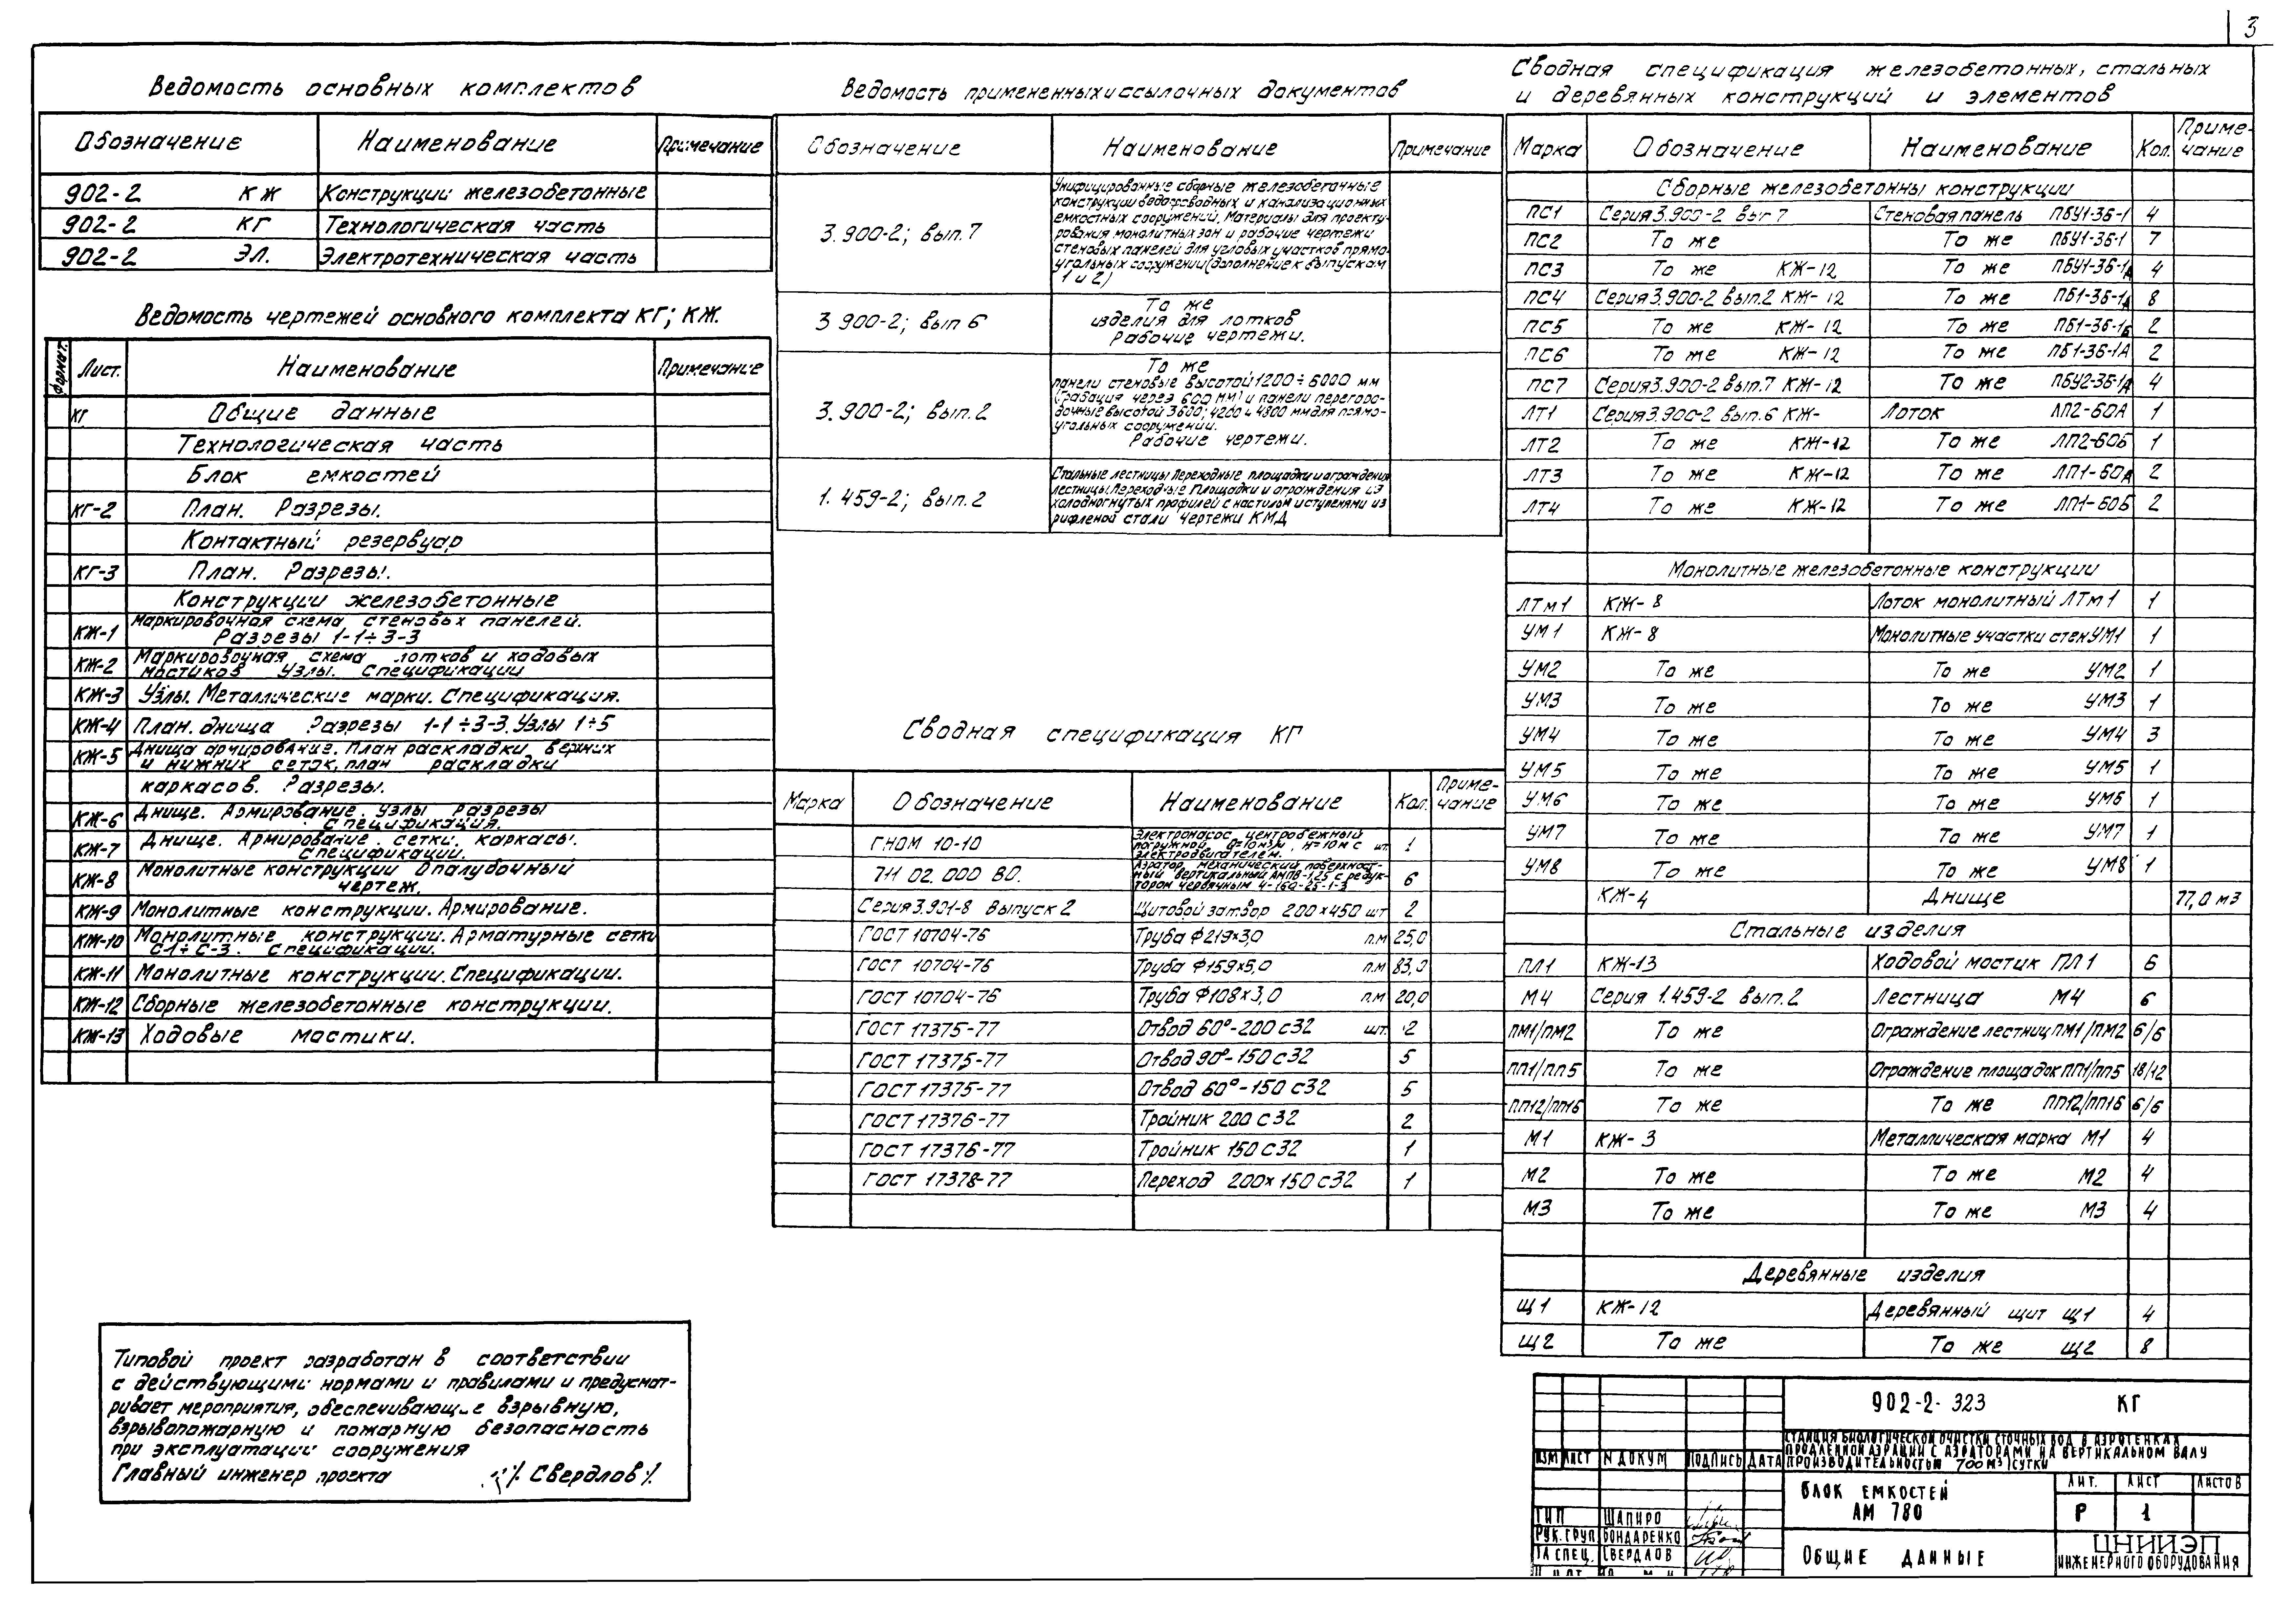 3
Ведомость основных комплектов
Обозначение Наименование Примечание
902-2 КЖ Конструкции железобетонные
902-2 КГ Технологическая часть
902-2 ЭЛ. Электротехническая часть
Ведомость чертежей основного комплекта КГ; КЖ.
Формат. Лист. Наименование Примечание
КГ Общие данные
Технологическая часть
Блок емкостей
КГ-2 План. Разрезы.
Контактный резервуар
КГ-3 План. Разрезы.
Конструкции железобетонные
КЖ-1 Маркировочная схема стеновых панелей.
Разрезы 1-1÷3-3
КЖ-2 Маркировочная схема лотков и ходовых
мостиков Узлы. Спецификации
КЖ-3 Узлы. Металлические марки. Спецификация.
КЖ-4 План. днища Разрезы 1-1÷3-3. Узлы 1÷5
КЖ-5 Днища армирование. План раскладки верхних
и нижних сеток, план раскладки
каркасов. Разрезы.
КЖ-6 Днище. Армирование. Узлы Разрезы
Спецификация.
КЖ-7 Днище. Армирование. сетки. каркасы.
Спецификации.
КЖ-8 Монолитные конструкции Опалубочный
чертеж.
КЖ-9 Монолитные конструкции. Армирование.
КЖ-10 Монолитные конструкции. Арматурные сетки
С1÷С-3. Спецификации.
КЖ-11 Монолитные конструкции. Спецификации.
КЖ-12 Сборные железобетонные конструкции.
КЖ-13 Ходовые мостики.
Типовой проект разработан в соответствии
с действующими нормами и правилами и предусмат-
ривает мероприятия, обеспечивающие взрывную,
взрывопожарную и пожарную безопасность
при эксплуатации сооружения
Главный инженер проекта /Свердлов/
Ведомость примененных и ссылочных документов
Обозначение Наименование Примечание
3.900-2; вып.7 Унифицированные сборные железобетонные
конструкции водопроводных и канализационных
емкостных сооружений. Материалы для проекти-
рования монолитных зон и рабочие чертежи
стеновых панелей для угловых участков прямо-
угольных сооружений (дополнение к выпускам
1 и 2)
3 900-2; вып 6 То же
изделия для лотков
Рабочие чертежи.
3.900-2; вып.2 То же
панели стеновые высотой 1200÷6000 мм
(градация через 600 мм) и панели перегоро-
дочные высотой 3600; 4200 и 4800 мм для прямо-
угольных сооружений.
Рабочие чертежи.
1.459-2; вып.2 Стальные лестницы Переходные площадки и ограждения
лестницы. Переходные Площадки и ограждения из
холодногнутых профилей с настилом и ступенями из
рифленой стали чертежи КМД
Сводная спецификация КГ
Марка Обозначение Наименование Кол. Приме-
чание
ГНОМ 10-10 Электронасос центробежный
погружной Q=10м³/ч, H=10м с шт. 1
электродвигателем.
711 02.000 ВО. Аэратор механический поверхност-
ный вертикальный АМПВ-1,25 с редук- 6
тором червячным Ч-160-25-1-3
Серия 3.901-8 Выпуск 2 Щитовой затвор 200×450 шт 2
ГОСТ 10704-76 Труба Ф219×3,0 п.м 25,0
ГОСТ 10704-76 Труба Ф159×5,0 п.м 83,0
ГОСТ 10704-76 Труба Ф108×3,0 п.м 20,0
ГОСТ 17375-77 Отвод 60°-200 с32 шт. 2
ГОСТ 17375-77 Отвод 90°-150 с32 5
ГОСТ 17375-77 Отвод 60°-150 с32 5
ГОСТ 17376-77 Тройник 200 с 32 2
ГОСТ 17376-77 Тройник 150 с 32 1
ГОСТ 17378-77 Переход 200×150 с32 1
Сводная спецификация железобетонных, стальных
и деревянных конструкций и элементов
Марка Обозначение Наименование Кол. Приме-
чание
Сборные железобетонны конструкции
ПС1 Серия 3.900-2 вып 7 Стеновая панель ПБУ1-36-1 4
ПС2 То же То же ПБУ1-36-1 7
ПС3 То же КЖ-12 То же ПБУ1-36-1А 4
ПС4 Серия 3.900-2 вып.2 КЖ-12 То же ПБ1-36-1А 8
ПС5 То же КЖ-12 То же ПБ1-36-1Б 2
ПС6 То же КЖ-12 То же ПБ1-36-1А 2
ПС7 Серия 3.900-2 вып.7 КЖ-12 То же ПБУ2-36-1А 4
ЛТ1 Серия 3.900-2 вып.6 КЖ- Лоток ЛП2-60А 1
ЛТ2 То же КЖ-12 То же ЛП2-60Б 1
ЛТ3 То же КЖ-12 То же ЛП1-60А 2
ЛТ4 То же КЖ-12 То же ЛП1-60Б 2
Монолитные железобетонные конструкции
ЛТм1 КЖ-8 Лоток монолитный ЛТм1 1
УМ1 КЖ-8 Монолитные участки стен УМ1 1
УМ2 То же То же УМ2 1
УМ3 То же То же УМ3 1
УМ4 То же То же УМ4 3
УМ5 То же То же УМ5 1
УМ6 То же То же УМ6 1
УМ7 То же То же УМ7 1
УМ8 То же То же УМ8 1
КЖ-4 Днище 77,0 м3
Стальные изделия
ПЛ1 КЖ-13 Ходовой мостик ПЛ1 6
М4 Серия 1.459-2 вып.2 Лестница М4 6
ПМ1/ПМ2 То же Ограждение лестниц ПМ1/ПМ2 6/6
ПП1/ПП5 То же Ограждение площадок ПП1/ПП5 18/12
ПП12/ПП16 То же То же ПП12/ПП16 6/6
М1 КЖ-3 Металлическая марка М1 4
М2 То же То же М2 4
М3 То же То же М3 4
Деревянные изделия
Щ1 КЖ-12 Деревянный щит Щ1 4
Щ2 То же То же Щ2 8
902-2-323 КГ
СТАНЦИЯ БИОЛОГИЧЕСКОЙ ОЧИСТКИ СТОЧНЫХ ВОД В АЭРОТЕНКАХ
ПРОДЛЕННОЙ АЭРАЦИИ С АЭРАТОРАМИ НА ВЕРТИКАЛЬНОМ ВАЛУ
ПРОИЗВОДИТЕЛЬНОСТЬЮ 700 М³/СУТКИ
ИЗМ ЛИСТ N ДОКУМ ПОДПИСЬ ДАТА
БЛОК ЕМКОСТЕЙ
АМ 780
ЛИТ. ЛИСТ ЛИСТОВ
Р 1
ГИП ШАПИРО
РУК.ГРУП БОНДАРЕНКО
ГЛ СПЕЦ. СВЕРДЛОВ
ОБЩИЕ ДАННЫЕ
ЦНИИЭП
ИНЖЕНЕРНОГО ОБОРУДОВАНИЯ